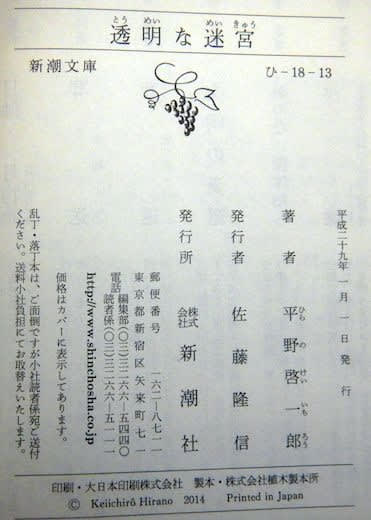 とう めい めい きゅう
透明な迷宮
新潮文庫
ひ-18-13
平成二十九年一月一日発行
著者 平野啓一郎
ひら の けい いち ろう
発行者 佐藤隆信
発行所 株式会社 新潮社
郵便番号 一六二-八七一一
東京都新宿区矢来町七一
電話 編集部(〇三)三二六六-五四四〇
読者係(〇三)三二六六-五一一一
http://www.shinchosha.co.jp
価格はカバーに表示してあります。
乱丁・落丁本は、ご面倒ですが小社読者係宛ご送付
ください。送料小社負担にてお取替えいたします。
印刷・大日本印刷株式会社 製本・株式会社植木製本所
© Keiichirô Hirano 2014 Printed in Japan